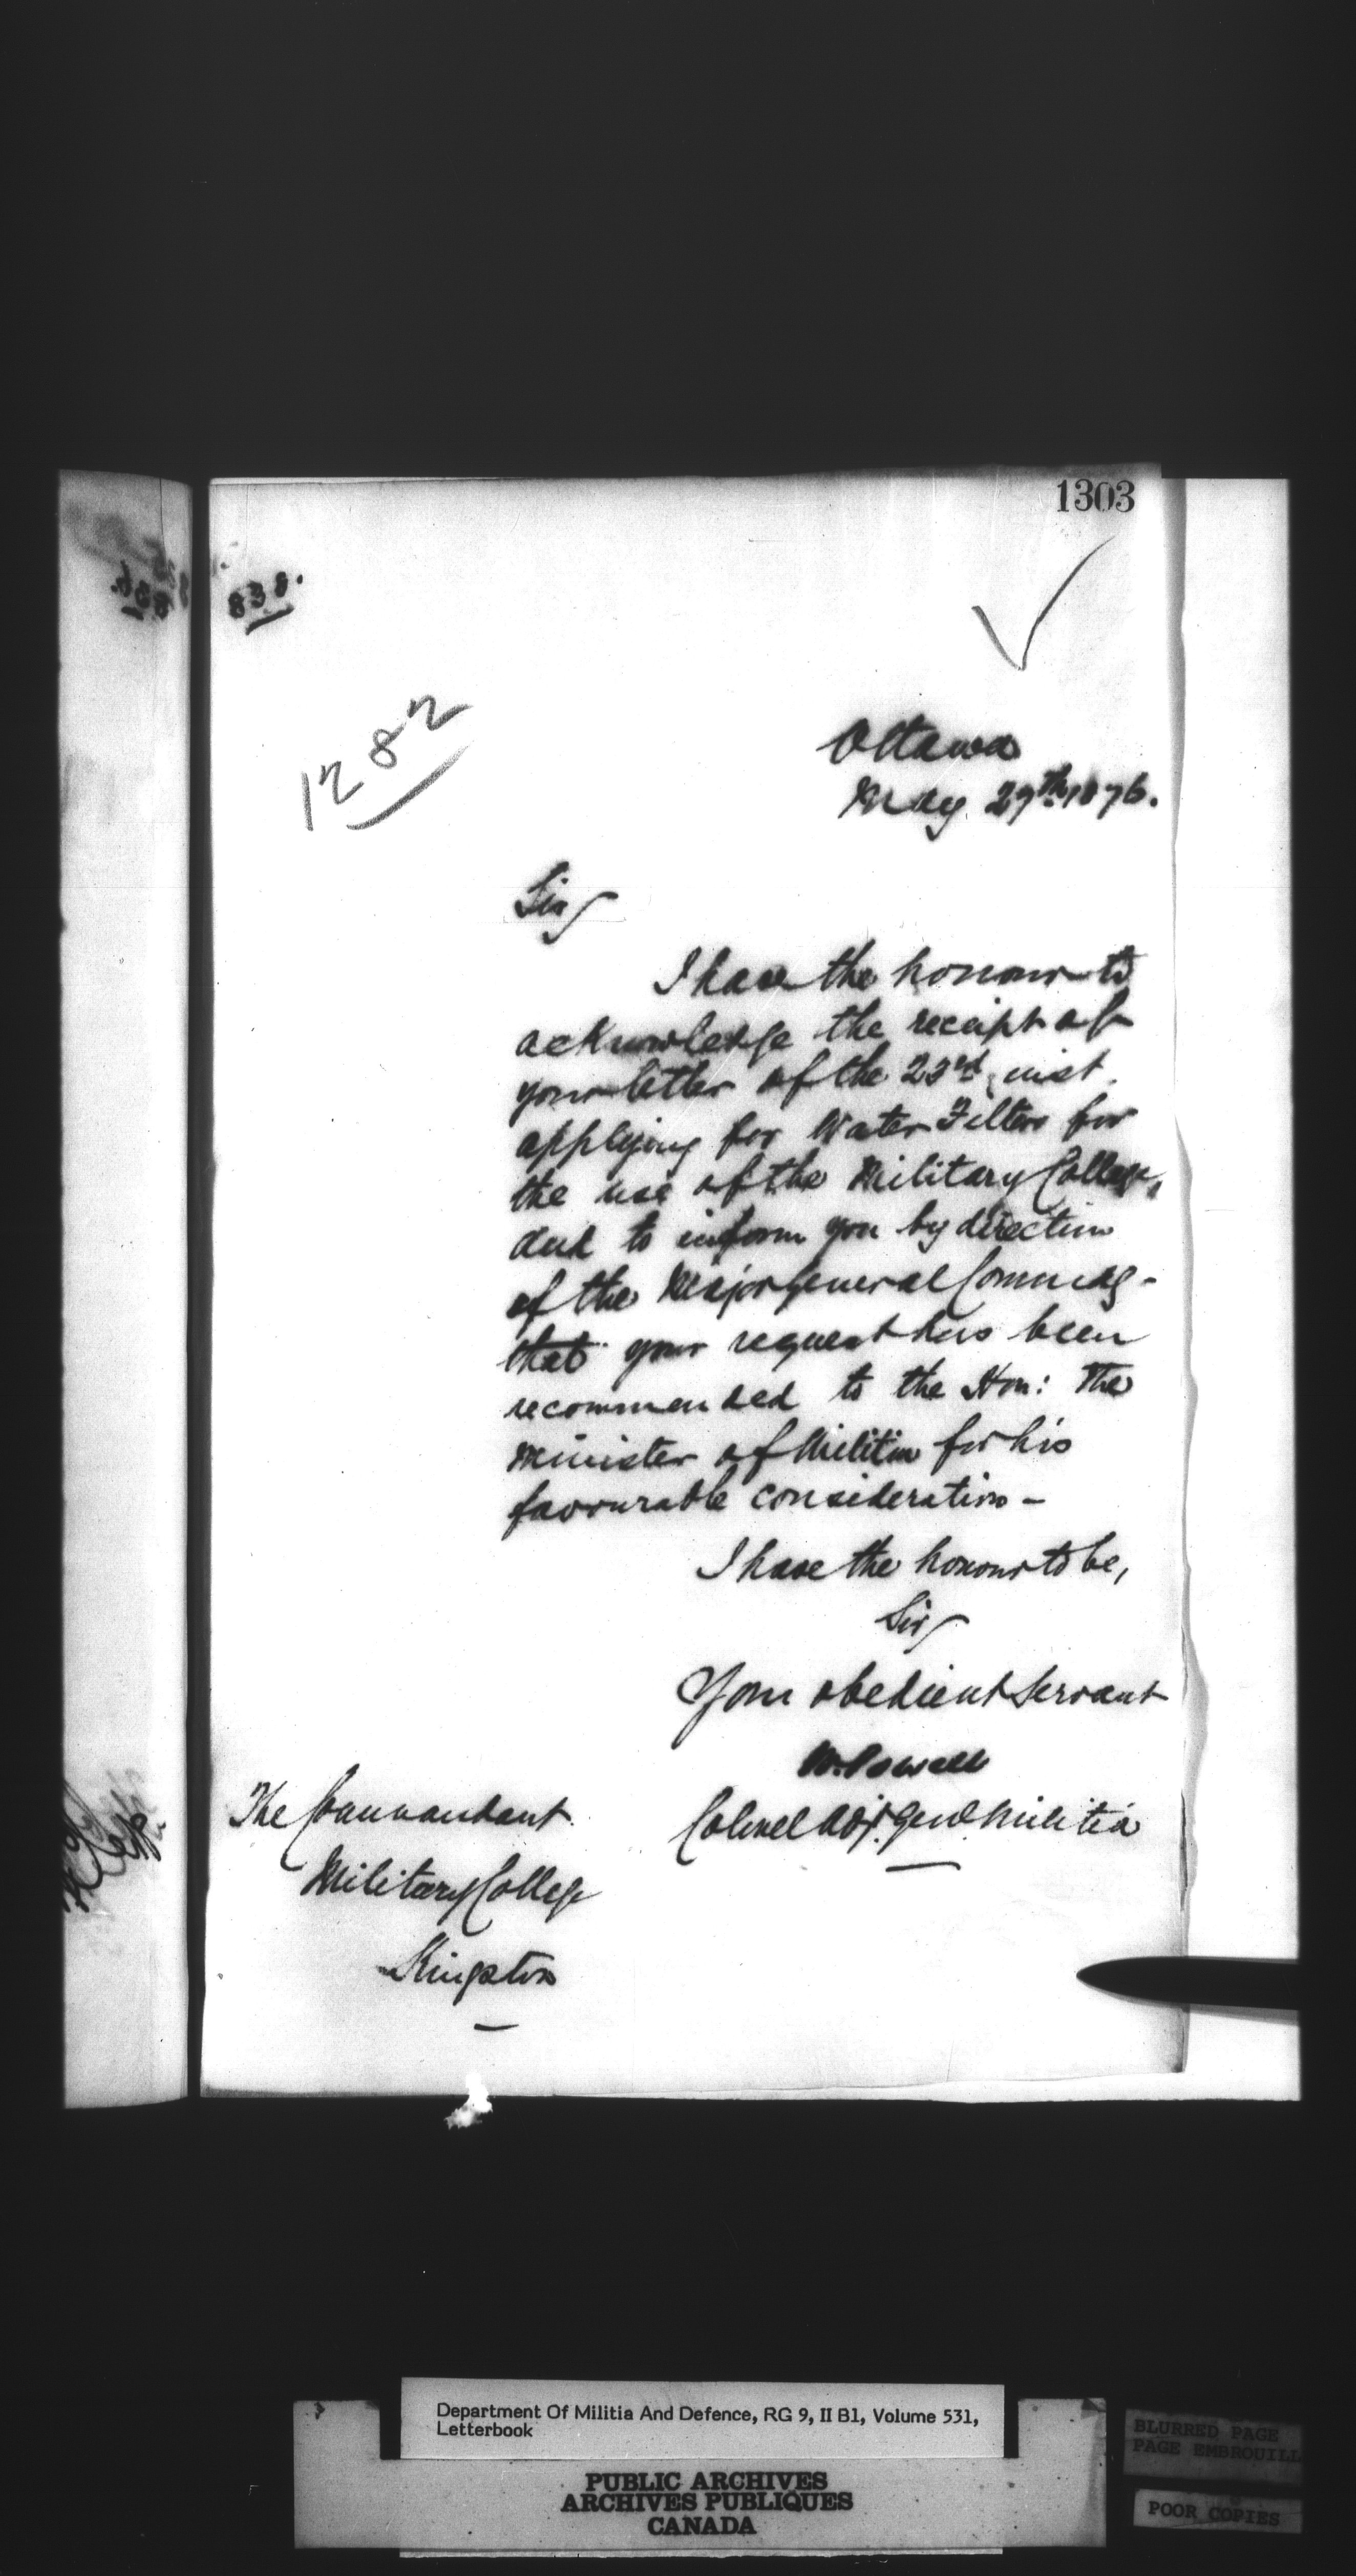 1303
838.
1282
Ottawa
May 29th 1876.
Sir
I have the honour to
acknowledge the receipt of
your letter of the 23rd inst.
applying for Water Filters for
the use of the Military College,
and to inform you by direction
of the Major General Commdg-
that your request has been
recommended to the Hon: The
Minister of Militia for his
favourable consideration -
I have the honour to be,
Sir
Your obedient Servant
W. Powell
Colonel Adj. Genl Militia
The Commandant
Military College
Kingston
Department Of Militia And Defence, RG 9, II B1, Volume 531,
Letterbook
PUBLIC ARCHIVES
ARCHIVES PUBLIQUES
CANADA
BLURRED PAGE
PAGE EMBROUILL
POOR COPIES